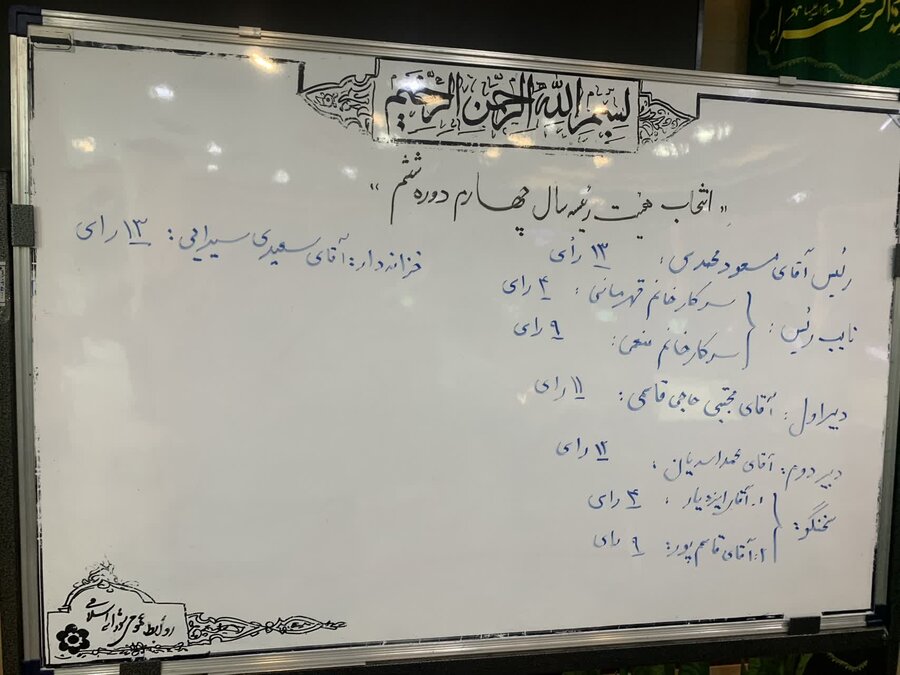 بسم الله الرحمن الرحیم
" انتخاب هیئت رئیسه سال چهارم دوره ششم "
رئیس آقای مسعود محمدی: ۱۳ رأی
نایب رئیس:
سرکار خانم قهرمانی: ۴ رای
سرکار خانم نخعی: ۹ رای
دبیر اول: آقای مجتبی حاجی قاسمی: ۱۱ رای
دبیر دوم: آقای محمد اسدیان: ۱۲ رای
سخنگو:
۱: آقای ایزدیار: ۴ رای
۲: آقای قاسم پور: ۹ رای
خزانه دار: آقای سعیدی سیرائی: ۱۳ رای
روابط عمومی شورای اسلامی